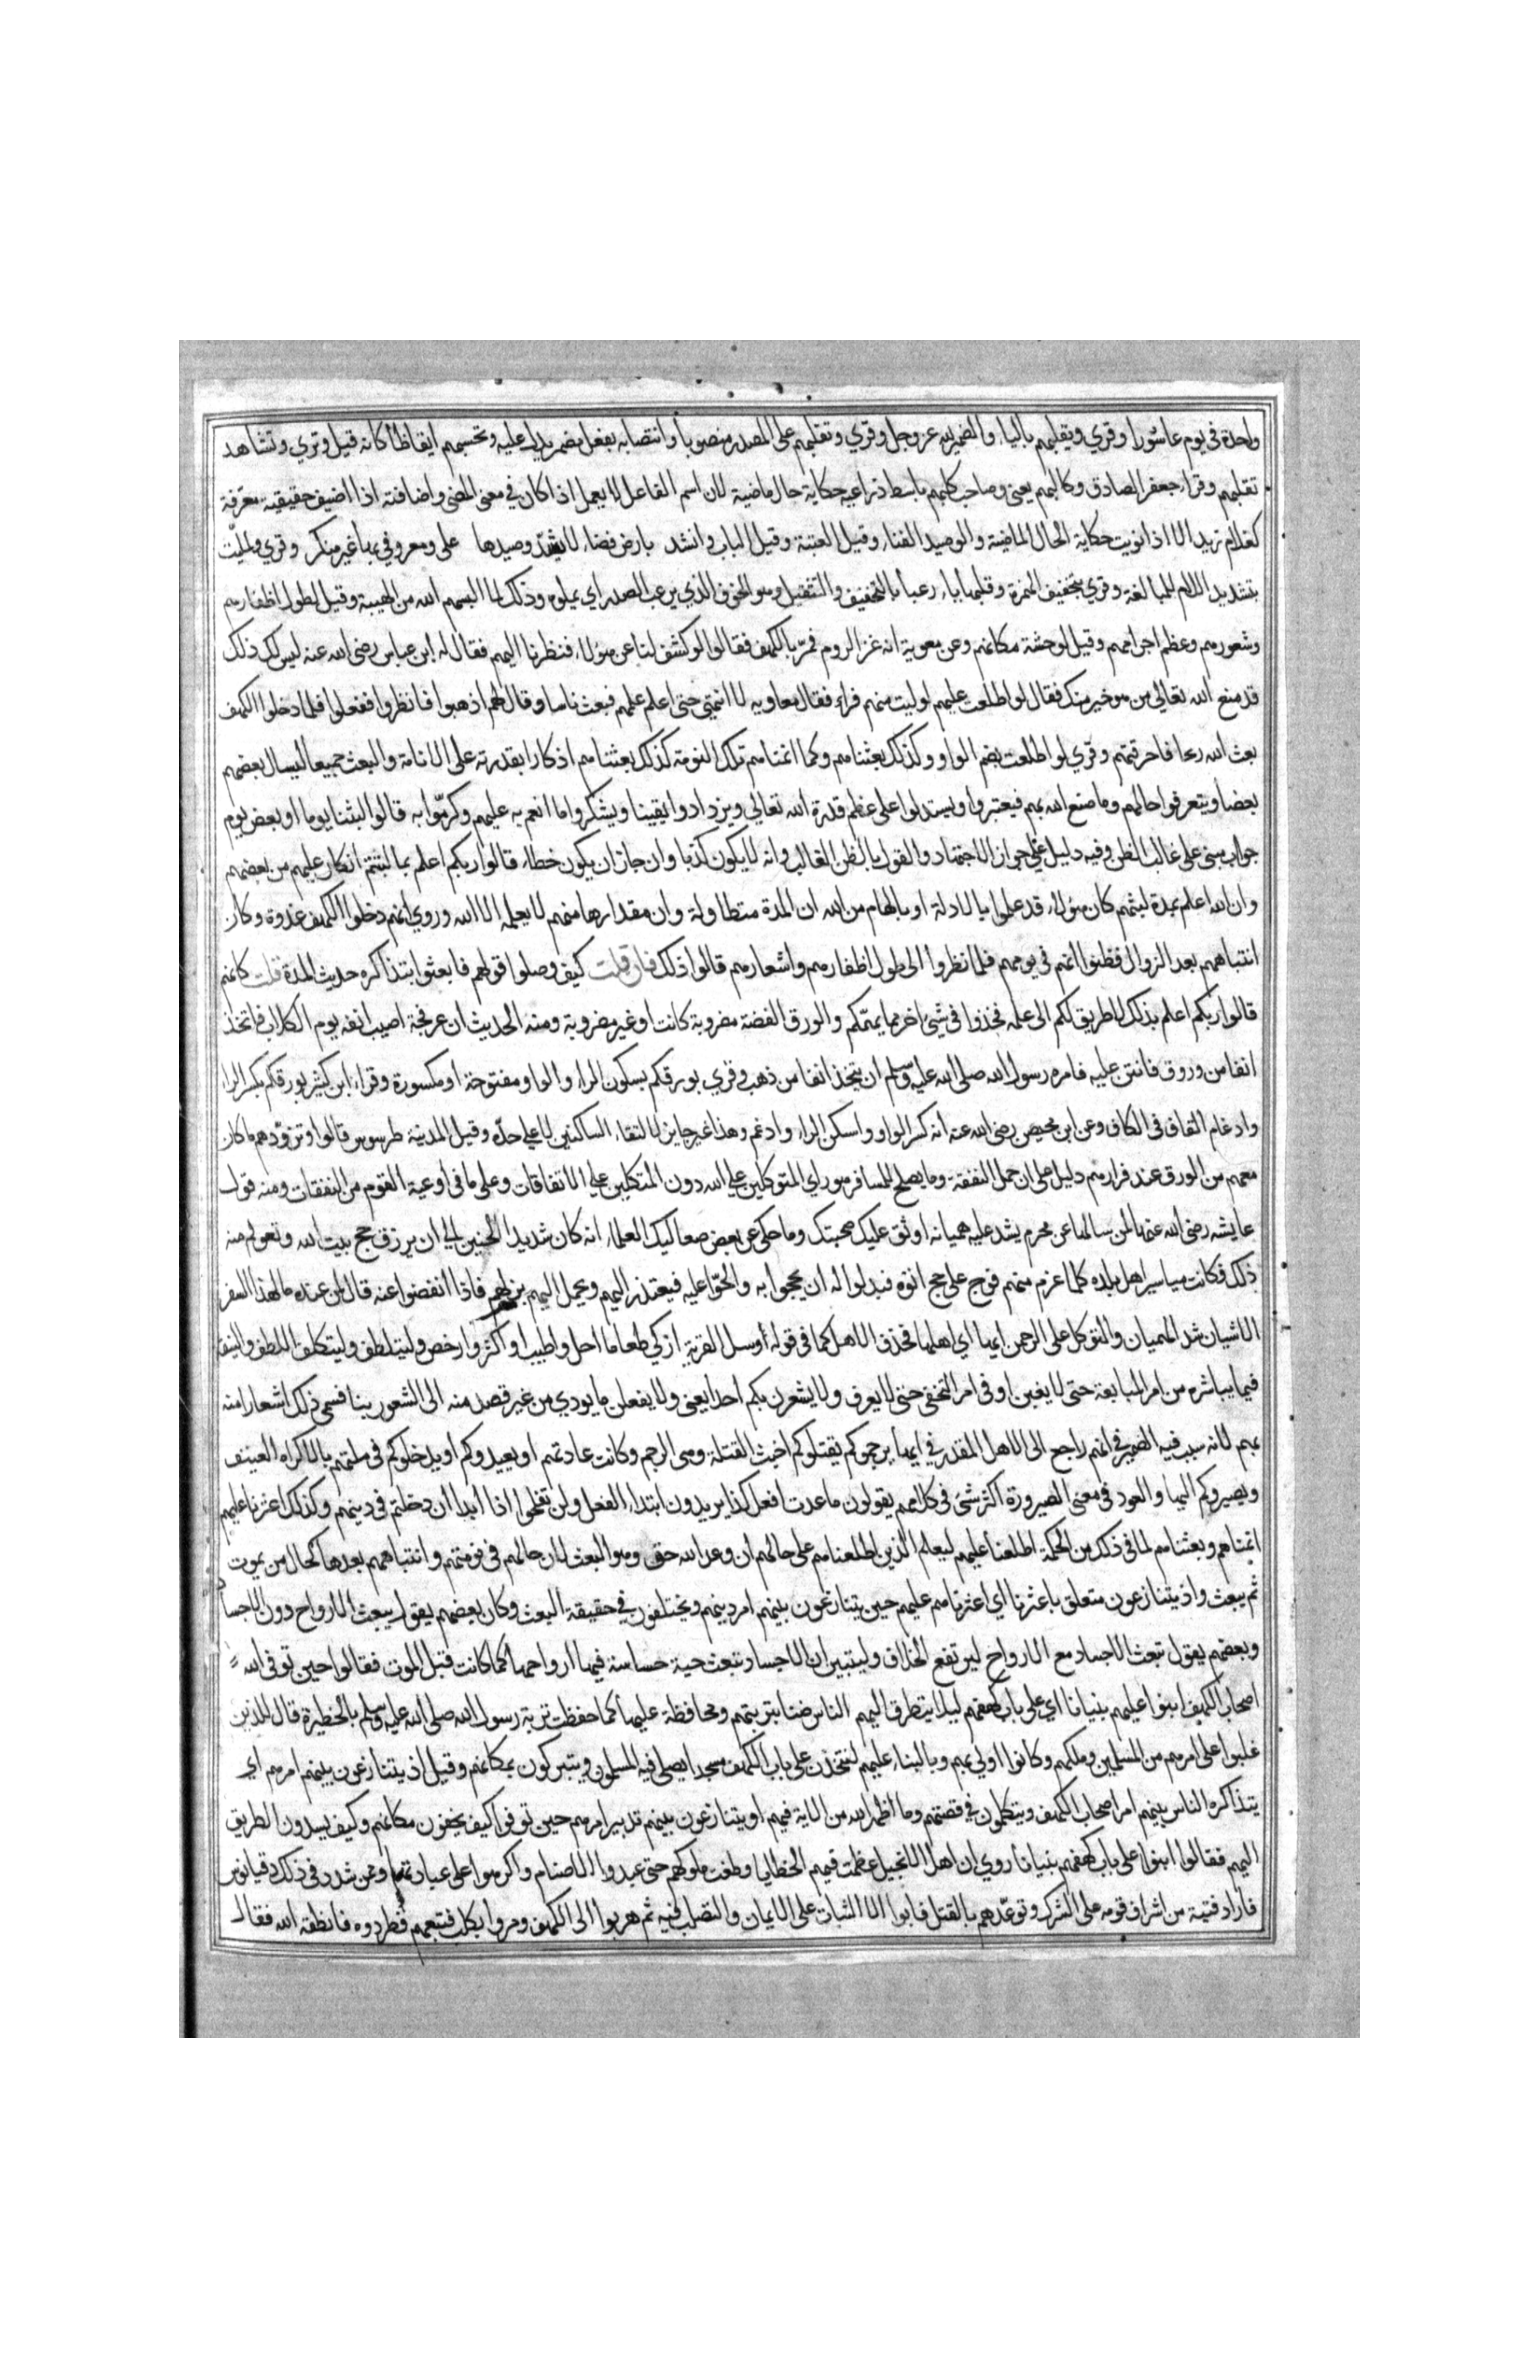 واحدة في يوم عاشورا وقري ويقلبهم بالياء والضمير لله عز وجل وقري وتقلبهم على المصدر منصوبا وانتصابه بفعل مضمر يدل عليه وتحسبهم ايقاظا كانه قيل وتري وتشاهد
تقلبهم وقراء جعفر الصادق وكالبهم يعني وصاحب كلبهم باسط ذراعيه حكاية حال ماضية لان اسم الفاعل لا يعمل اذا كان في معنى المضي واضافته اذا اضيف حقيقية معرّفة
كغلام زيد الا اذا نويت حكاية الحال الماضية والوصيد الفناء وقيل العتبة وقيل الباب وانشد بارض فضاء لا يسّد وصيدها على ومعروفي بها غير منكر وقري ولملّئت
بتشديد اللام للمبالغة وقري بتخفيف الهمزة وقلبها ياء رعبا بالتخفيف والتثقيل وهو الخوف الذي يرعب الصدر اي يملوه وذلك لما البسهم الله من الهيبة وقيل لطول اظفارهم
وشعورهم وعظم اجرامهم وقيل لوحشة مكانهم وعن معوية انه غزا الروم فمرّ بالكهف فقالوا لو كشف لنا عن هؤلاء فنظرنا اليهم فقال له ابن عباس رضي الله عنه ليس لك ذلك
قد منع الله تعالي من هو خير منك فقال لو اطلعت عليهم لوليت منهم فرارا فقال معاويه لا انتهي حتى اعلم علمهم فبعث ناسا وقال لهم اذهبوا فانظروا ففعلوا فلما دخلوا الكهف
بعث الله ريحا فاحرقتهم وقري لو اطلعت بضم الواو وكذلك بعثناهم وكما انمناهم تلك النومة كذلك بعثناهم اذكارا بقدرته على الانامة والبعث جميعا ليسال بعضهم
بعضا ويتعرفوا حالهم وما صنع الله بهم فيعتبروا ويستدلوا على عظم قدرة الله تعالي ويزدادوا يقينا ويشكروا ما انعم به عليهم وكرّموا به قالوا لبثنا يوما او بعض يوم
جواب مبني على غالب الظن وفيه دليل على جواز الاجتهاد والقول بالظن الغالب وانه لا يكون كذبا وان جاز ان يكون خطاء قالوا ربكم اعلم بما لبثتم انكار عليهم من بعضهم
وان الله اعلم بمدة لبثهم كان هؤلاء قد علموا بالادلة او بالهام من الله ان المدة متطاولة وان مقدارها مبهم لا يعلمه الا الله وروي انهم دخلوا الكهف غدوة وكان
انتباههم بعد الزوال فظنوا انهم في يومهم فلما نظروا الى طول اظفارهم واشعارهم قالوا ذلك فان قلت كيف وصلوا قولهم فابعثوا بتذاكره حديث المدة قلت كانهم
قالوا ربكم اعلم بذلك لا طريق لكم الى علمه فخذوا في شئ اخر مما يهمّكم والورق الفضة مضروبة كانت او غير مضروبة ومنه الحديث ان عرفجة اصيب انفه يوم الكلاب فاتخذ
انفا من ورق فانتن عليه فامره رسول الله صلى الله عليه وسلم ان يتخذ انفا من ذهب وقري بورقكم بسكون الراء والواو مفتوحة او مكسورة وقراء ابن كثير بورقكم بكسر الراء
وادغام القاف في الكاف وعن ابن محيصن رضي الله عنه انه كسر الواو واسكن الراء وادغم وهذا غير جايز لالتقاء الساكنين لا على حدّه وقيل المدينة طرسوس قالوا وتزوّدهم ما كان
معهم من الورق عند فرارهم دليل على ان حمل النفقة وما يصلح للمسافر هو راي المتوكلين على الله دون المتكلين على الاتفاقات وعلى ما في اوعية القوم من النفقات ومنه قول
عايشه رضي الله عنها لمن سالها عن محرم يشد عليه هميانه اوثق عليك محبتك وما حكي عن بعض صعاليك العلماء انه كان شديد الحنين الي ان يرزق حج بيت الله وتعولم منه
ذلك فكانت مياسير اهل بلده كلما عزم منهم فوج على حج اتوه فبذلوا له ان يحجوا به والحّوا عليه فيعتذر اليهم ويحمل اليهم بذلهم فاذا انفضوا عنه قال لمن عنده ما لهذا السفر
الا شيان شد الهميان والتوكل على الرحمن ايها اي اهلها فحذف الاهل كما في قوله وسل القرية ازكي طعاما احل واطيب او اكثر وارخص وليتلطف وليتكلف اللطف والنيقة
فيما يباشره من امر المبايعة حتى لا يغبن او في امر التخفي حتى لا يعرف ولا يشعرن بكم احدا يعني ولا يفعلن ما يودي من غير قصد منه الى الشعور بنا فسمي ذلك اشعارا منه
بهم لانه سبب فيه الضمير في انهم راجع الى الاهل المقدر في ايها يرجموكم يقتلوكم اخبث القتلة وهى الرجم وكانت عادتهم او يعيدوكم او يدخلوكم في ملتهم بالاكراه العنيف
ويصيروكم اليها والعود في معنى الصيرورة اكثر شئ في كلامهم يقولون ما عدت افعل كذا يريدون ابتداء الفعل ولن تفلحوا اذا ابدا ان دخلتم في دينهم وكذلك اعثرنا عليهم
انمناهم وبعثناهم لما في ذلك من الحكمة اطلعنا عليهم ليعلم الذين اطلعناهم على حالهم ان وعد الله حق وهو البعث لان حالهم في نومتهم وانتباههم بعدها كحال من يموت
ثم يبعث واذ يتنازعون متعلق باعثرنا اي اعثرناهم عليهم حين يتنازعون بينهم امر دينهم ويختلفون في حقيقة البعث وكان بعضهم يقول يبعث الارواح دون الاجسا
وبعضهم يقول تبعث الاجساد مع الارواح ليرتفع الخلاف وليتبين ان الاجساد تبعث حية حساسة فيها ارواحها كما كانت قبل الموت فقالوا حين توفي الله
اصحاب الكهف ابنوا عليهم بنيانا اي على باب كهفهم ليلا يتطرق اليهم الناس ضنا بتربتهم ومحافظة عليها كما حفظت تربة رسول الله صلى الله عليه وسلم بالحظيرة قال الذين
غلبوا على امرهم من المسلمين وملكهم وكانوا اولي بهم وبالبناء عليهم لنتخذن على باب الكهف مسجدا يصلي فيه المسلمون ويتبركون بمكانهم وقيل اذ يتنازعون بينهم امرهم اي
يتذاكره الناس بينهم امر اصحاب الكهف ويتكلمون في قصتهم وما اظهر الله من الاية فيهم او يتنازعون بينهم تدبير امرهم حين توفوا كيف يخفون مكانهم وكيف يسدون الطريق
اليهم فقالوا ابنوا على باب كهفهم بنيانا روي ان اهل الانجيل عظمت فيهم الخطايا وطغت ملوكهم حتى عبدوا الاصنام واكرهوا على عبادتها وممن شدد في ذلك دقيانوس
فاراد فتية من اشراف قومه على الشرك وتوعّدهم بالقتل فابوا الا الثبات على الايمان والتصلب فيه ثم هربوا الى الكهف ومروا بكلب فتبعهم فطردوه فانطقه الله فقال